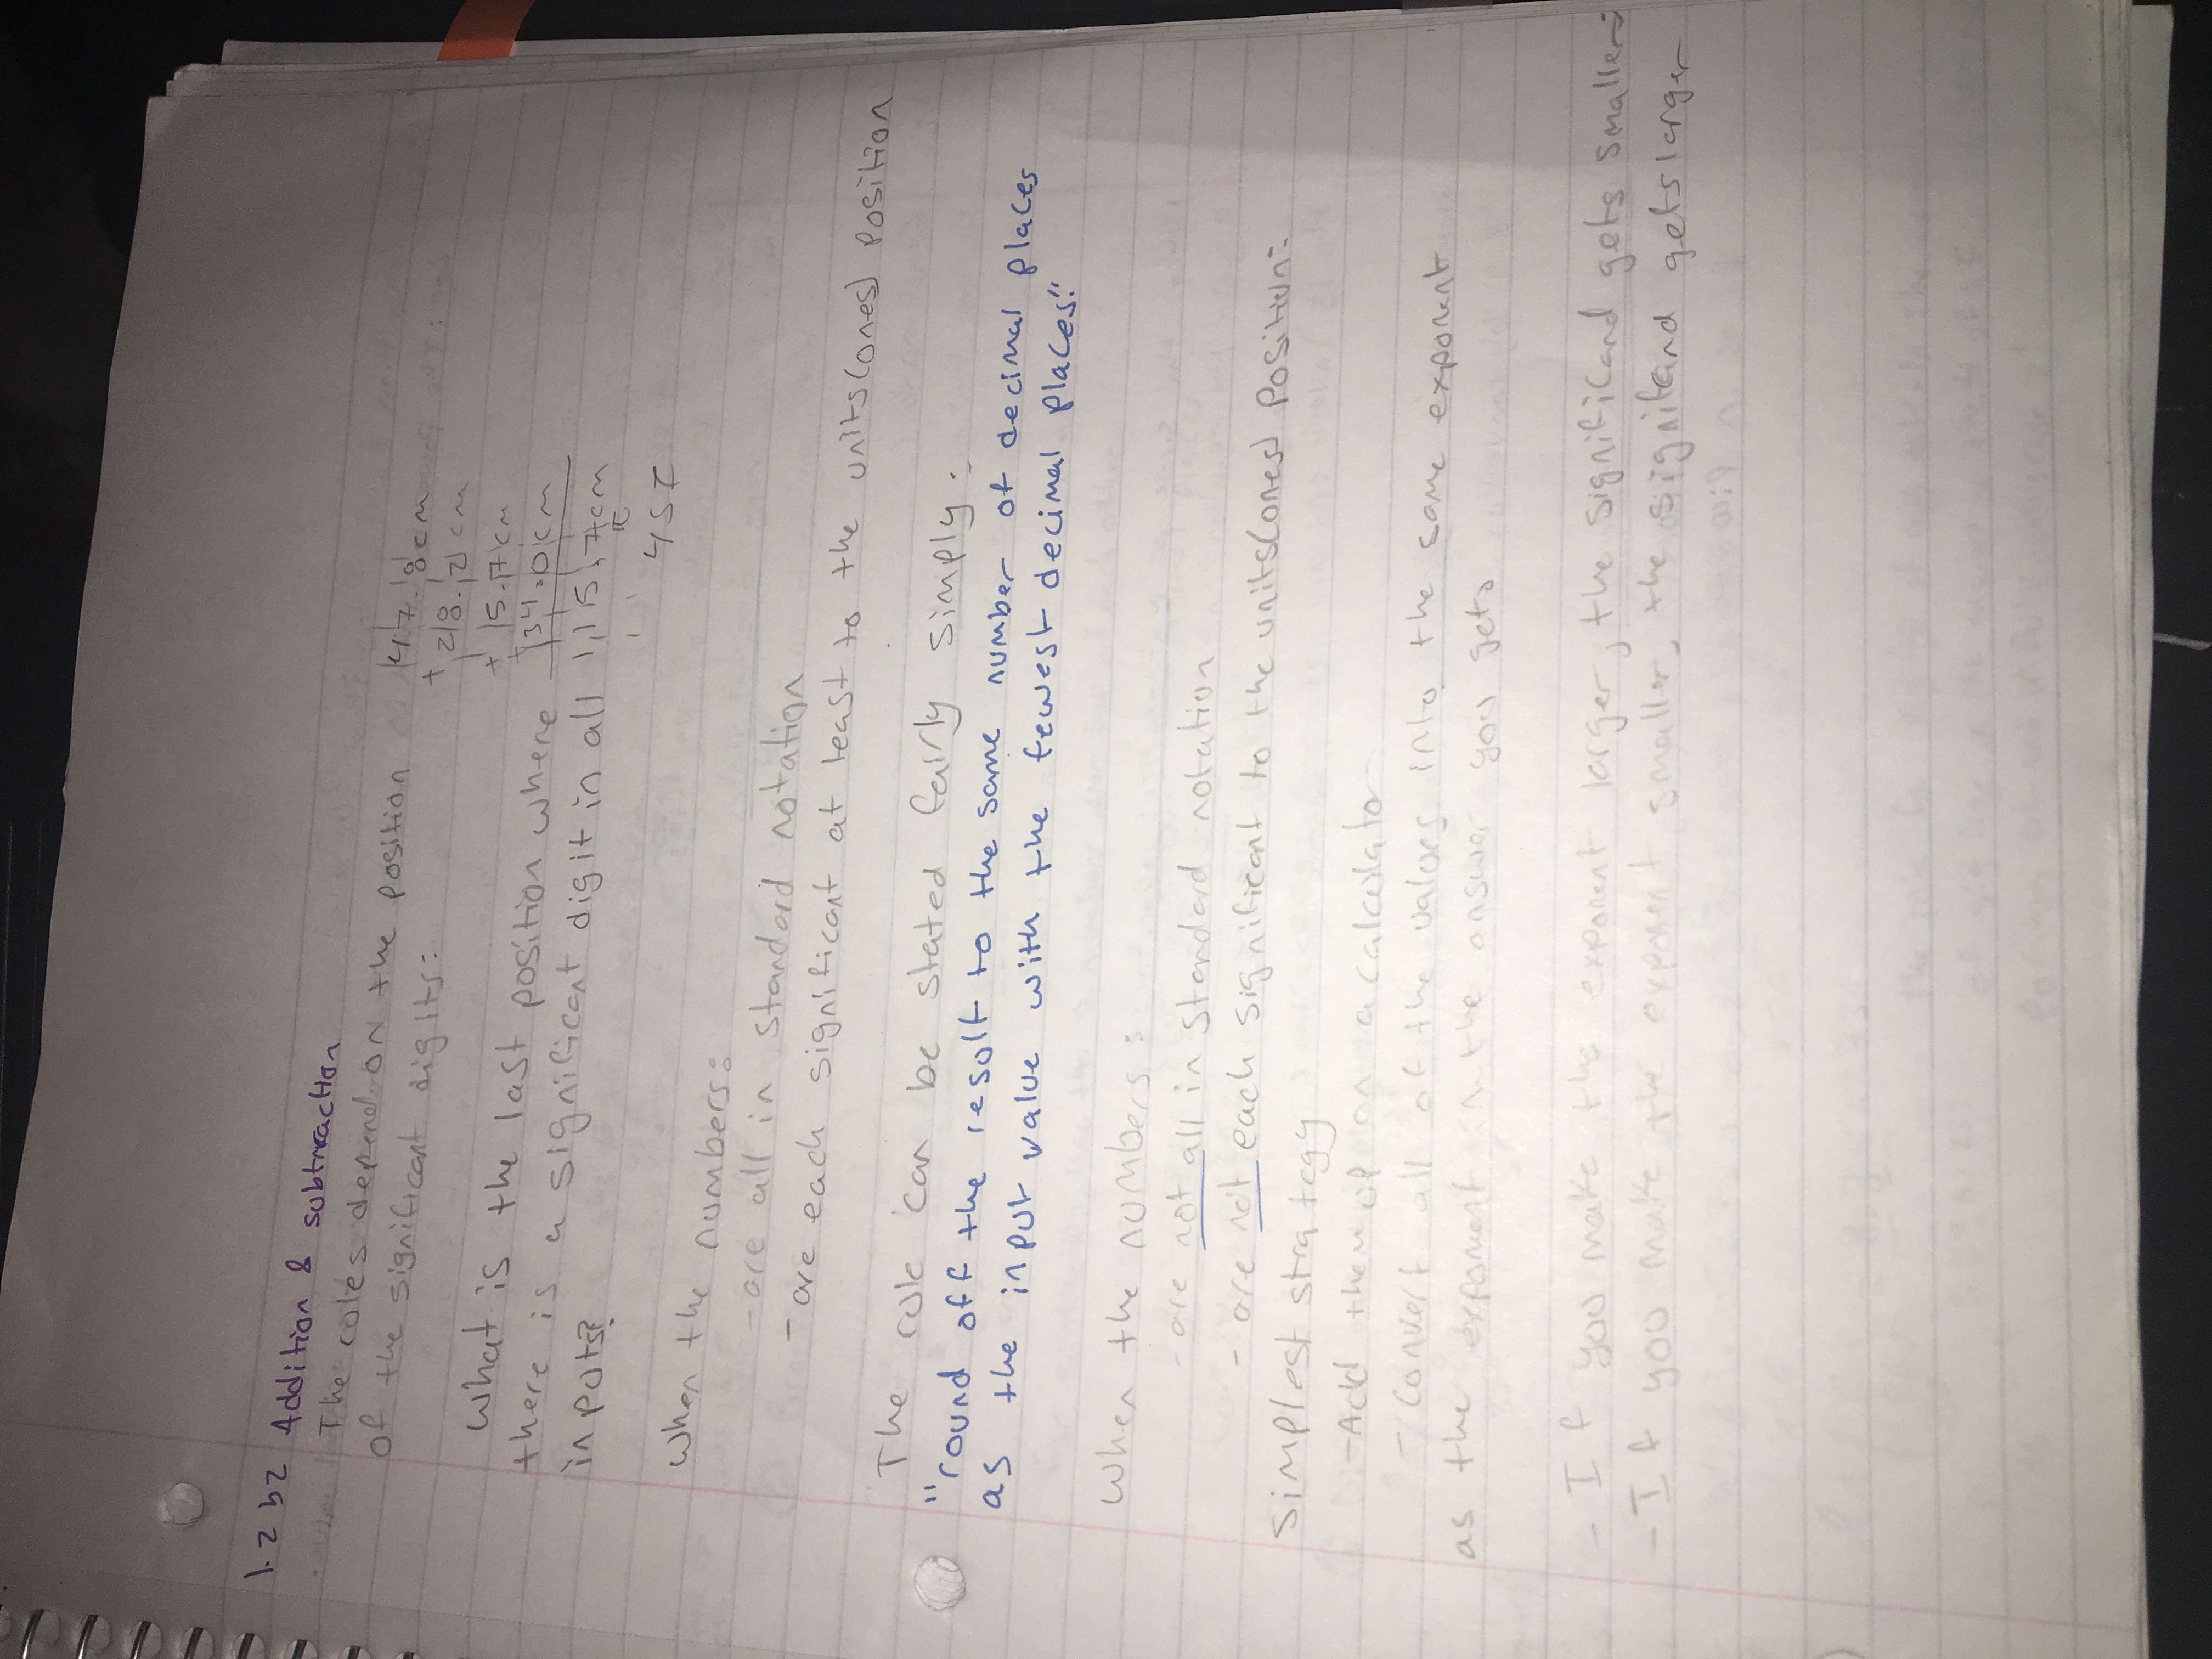 1.2 b2 Addition & subtraction
The rules depend on the position
of the significant digits:
47.8cm
+ 28.2cm
+ 15.17cm
+ 34.0cm
What is the last position where
there is a significant digit in all
inputs?
4SF
When the numbers:
- are all in standard notation
- are each significant at least to the units(ones) position
The rule can be stated fairly simply:
"round off the result to the same number of decimal places
as the input value with the fewest decimal places"
When the numbers:
- are not all in standard notation
- are not each significant to the units(ones) position:
Simplest strategy
- Add them up on a calculator
- Convert all of the values into the same exponent
as the exponent in the answer you get
- If you make the exponent larger, the significand gets smaller
- If you make the exponent smaller, the signifand gets larger